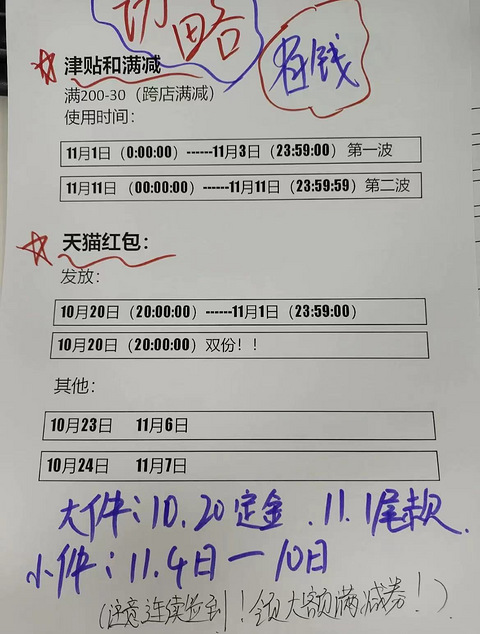 攻略
省钱
津贴和满减
满200-30（跨店满减）
使用时间：
11月1日（0:00:00）------11月3日（23:59:00）第一波
11月11日（00:00:00）------11月11日（23:59:59）第二波
天猫红包：
发放：
10月20日（20:00:00）------11月1日（23:59:00）
10月20日（20:00:00）双份！！
其他：
10月23日 11月6日
10月24日 11月7日
大件：10.20定金.11.1尾款.
小件：11.4日一10日
（注意连续签到！领大额满减券！）